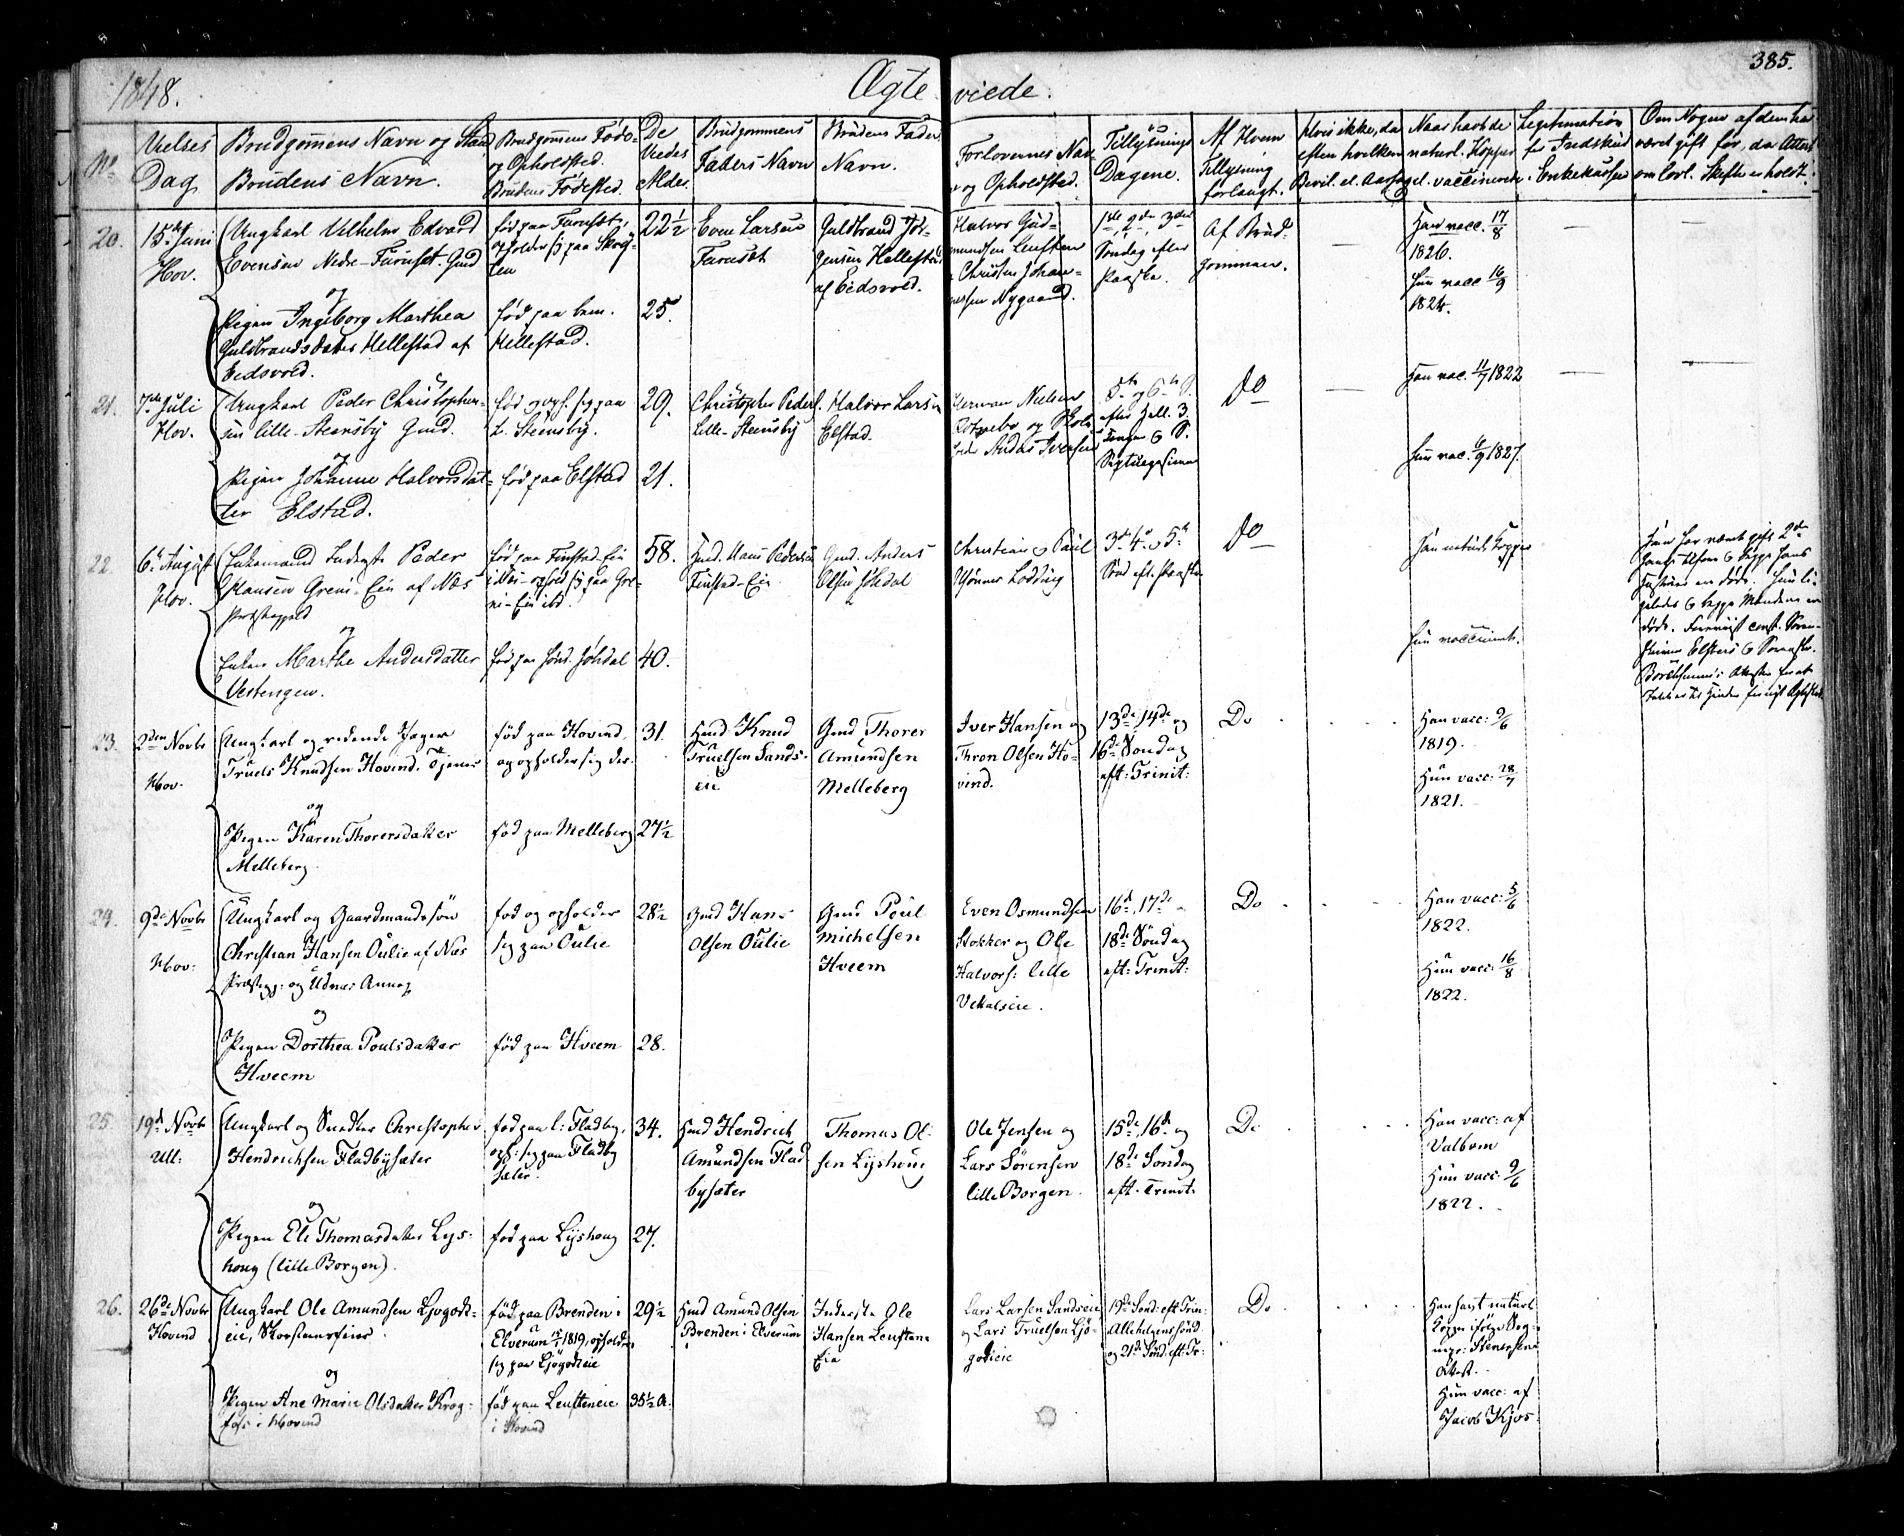 1848.
Ægte
viede.
385.
No
Vielses
Dag
Brudgommens Navn og Stand
Brudens Navn.
Brudgommens Føde-
og Opholdsted.
Brudens Fødested.
De
Viedes
Alder
Brudgommens
Faders Navn
Brudens Fader
Navn.
Forlovernes Nav
og Opholdsted.
Tillysnings
Dagene.
Af Hvem
Tillysning
forlangt.
Hvis ikke, da
efter hvilken
Bevil. el. Aarsag
Naar havt de
naturl. Kopper
el. vaccinerede
Legitimation
for Indskud
i Enkekassen
Om Nogen af dem ha
været gift før, da Attest
om lovl. Skifte er holdt.
20.
15de Juni
Hov.
Ungkarl Vilhelm Edvard
Evensen Nedre-Furuset. Gmd
og
Pigen Ingeborg Marthea
Guldbrandsdatter Hellestad af
Eidsvold.
fød paa Furuset,
opholder sig paa
fød paa bem.
Hellestad.
22½
25.
Even Larsen
Furuset
Guldbrand Jør-
gensen Hellestad
af Eidsvold.
Halvor Gud-
mundsen Leuften
Christen Johan-
nessen Nygaard.
1ste, 2de, 3de
Søndag efter
Paaske.
Af Brud-
gommen.
Han vacc. 17/8
1826.
Hun vacc 16/9
1824.
21.
7de Juli
Hov.
Ungkarl Peder Christopher-
sen lille-Steensby Gmd.
og
Pigen Johanne Halvorsdat-
ter Elstad.
fød og oph. sig paa
L. Steensby.
fød paa Elstad
29.
21.
Christopher Peders.
Lille-Steensby
Halvor Larsen
Elstad.
Herman Nielsen
og Skole
Anders Iversen
5te og 6te S.
efter Hell. 3.
Konger & S.
Septuagesima
Do
Han vac. 11/7 1822
Hun vac. 6/9 1827.
22
6te August
Hov.
Enkemand Inderste Peder
Hansen Greni-Eie af Næs
Præstegjeld
og
Enken Marthe Andersdatter
Vestengen.
fød paa Finstad-Eie
i Næs - ophold sig paa Gre-
ni-Eie ibd.
fød paa Jøhdal
58.
40.
Hmd. Hans Pedersen
Finstad-Eie
Gmd. Anders
Olsen Jøhdal
Christian & Paul
Lodding
3de 4de & 5te
Sønd eft. Paaske
Do
Han naturl. Kopper
Hun vaccineret.
Han har været gift 2de
Gange tilforn & begge hans
Hustruer ere døde. Hun li-
geledes & begge Mændene ere
døde.
23.
2den Novbr
Hov.
Ungkarl og ridende Jæger
Truels Knudsen Hovind. Tjener
og
Pigen Karen Thorersdatter
Melleberg.
fød paa Hovind,
og opholder sig der.
fød paa Melleberg
31.
27½
Hmd. Knud
Truelsen Sands-
eie
Gmd Thorer
Amundsen
Melleberg
Iver Hansen og
Thron Olsen Ho-
vind.
13de, 14de og
16de Søndag
eft: Trinit:
Do
Han vacc: 9/6
1819.
Hun vacc: 28/7
1821.
24.
9de Novbr
Hov:
Ungkarl og Gaardmandssøn
Christian Hansen Oulie af Næs
Præstegj: og Udnæs Annex
og
Pigen Dorthea Poulsdatter
Hveem
fød og opholder
sig paa Oulie
fød paa Hveem
28½
28.
Gmd Hans
Olsen Oulie
Gmd Poul
Michelsen
Hveem
Even Osmundsen
Stokker og Ole
Halvors: lille
Vekalseie.
16de, 17de
18de Søndag
eft: Trinit:
Do
Han vacc: 5/6
1822.
Hun vacc: 16/8
1822.
25.
19de Novbr
Ull:
Ungkarl og Snedker Christopher
Hendrichsen Fladbysæter
og
Pigen Eli Thomasdatter Lys-
houg (lille Borgen).
fød paa l: Fladby,
oph: sig paa Fladby
sæter.
fød paa Lyshoug
34.
27.
Hmd Hendrich
Amundsen Flad-
bysæter
Thomas Ol-
sen Lyshoug
Ole Jensen og
Lars Sørensen
lille Borgen.
15de, 16de og
18de Søndag
eft. Trinit:
Do
Han vacc: af
Valbom
Hun vacc: 9/6
1822.
26.
26de Novbr
Hovind
Ungkarl Ole Amundsen Ljøgodt-
eie, Skorsteensfeier
og
Pigen Ane Marie Olsdatter Krog-
fos i Hovind
fød paa Brenden i
Elverum 1819, ophold:
sig paa Ljøgodteie
fød paa Leufteneie
i Hovind
29½
35½ A.
Hmd Amund Olsen
Brenden i Elverum
Inderste Ole
Hansen Leuften-
Eie
Lars Larsen Sandseie
og Lars Truelsen Ljø-
godteie
19de Sønd: eft Trin:
Allehelgenssønd.
og 21de Sønd: eft: Tr:
Do
Han havt naturl
Kopper ifølge Sog-
nepr: Stenersens
Attest.
Hun vacc: af
Jacob Kjos-